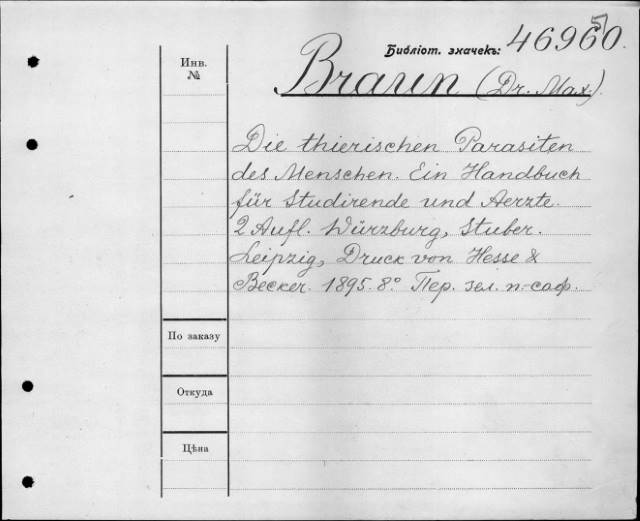 Библіот. значекъ: 46960.
5
Инв.
№
Braun (Dr. Max.).
Die thierischen Parasiten
des Menschen. Ein Handbuch
für Studirende und Aerzte.
2 Aufl. Würzburg, Stuber.
Leipzig, Druck von Hesse &
Becker. 1895. 8º Пер. зел. п.-саф.
По заказу
Откуда
Цѣна